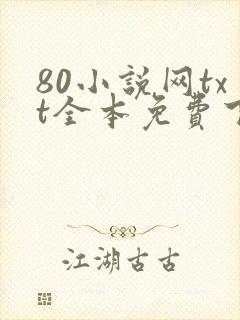 80小説网tx
t全本免費
江湖古古